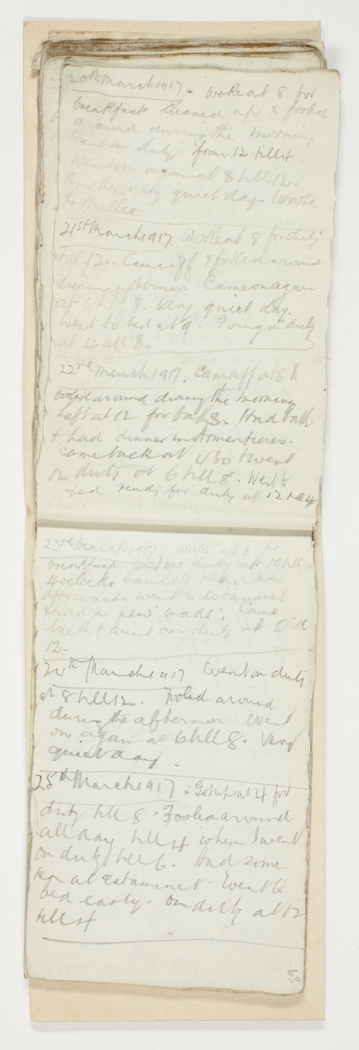 20th March 1917. Woke at 8 for
breakfast. Cleaned up & fooled
around during the morning
Went on duty from 12 till 4.
Went on again at 8 till 12.
Another very quiet day. Wrote
to Millee
21st March 1917. Woke at 8 for duty
till 12. Came off & fooled around
during afternoon. Came on again
at 6 till 8. Very quiet day.
Went to bed at 9. Going on duty
at 4 till 8.
22nd March 1917. Came off at 8 &
fooled around during the morning
Left at 12 for baths. Had bath
& had dinner in Armentieres.
Came back at 430 & went
on duty at 6 till 8. Went to
bed ready for duty at 12 till 4
23rd March 1917 woke at 8 for
breakfast. went on duty at 10 till
4 oclock. Came off &
afterwards went to estaminet
& had a few words. Came
back & went on duty at 8 till
12.
24th March 1917 Went on duty
at 8 till 12. Fooled around
during the afternoon. Went
on again at 6 till 8. Very
quiet day.
25th March 1917. Got up at 4 for
duty till 8. Fooled around
all day till 4 when I went
on duty till 6. Had some
at estaminet. Went to
bed early. on duty at 12
till 4